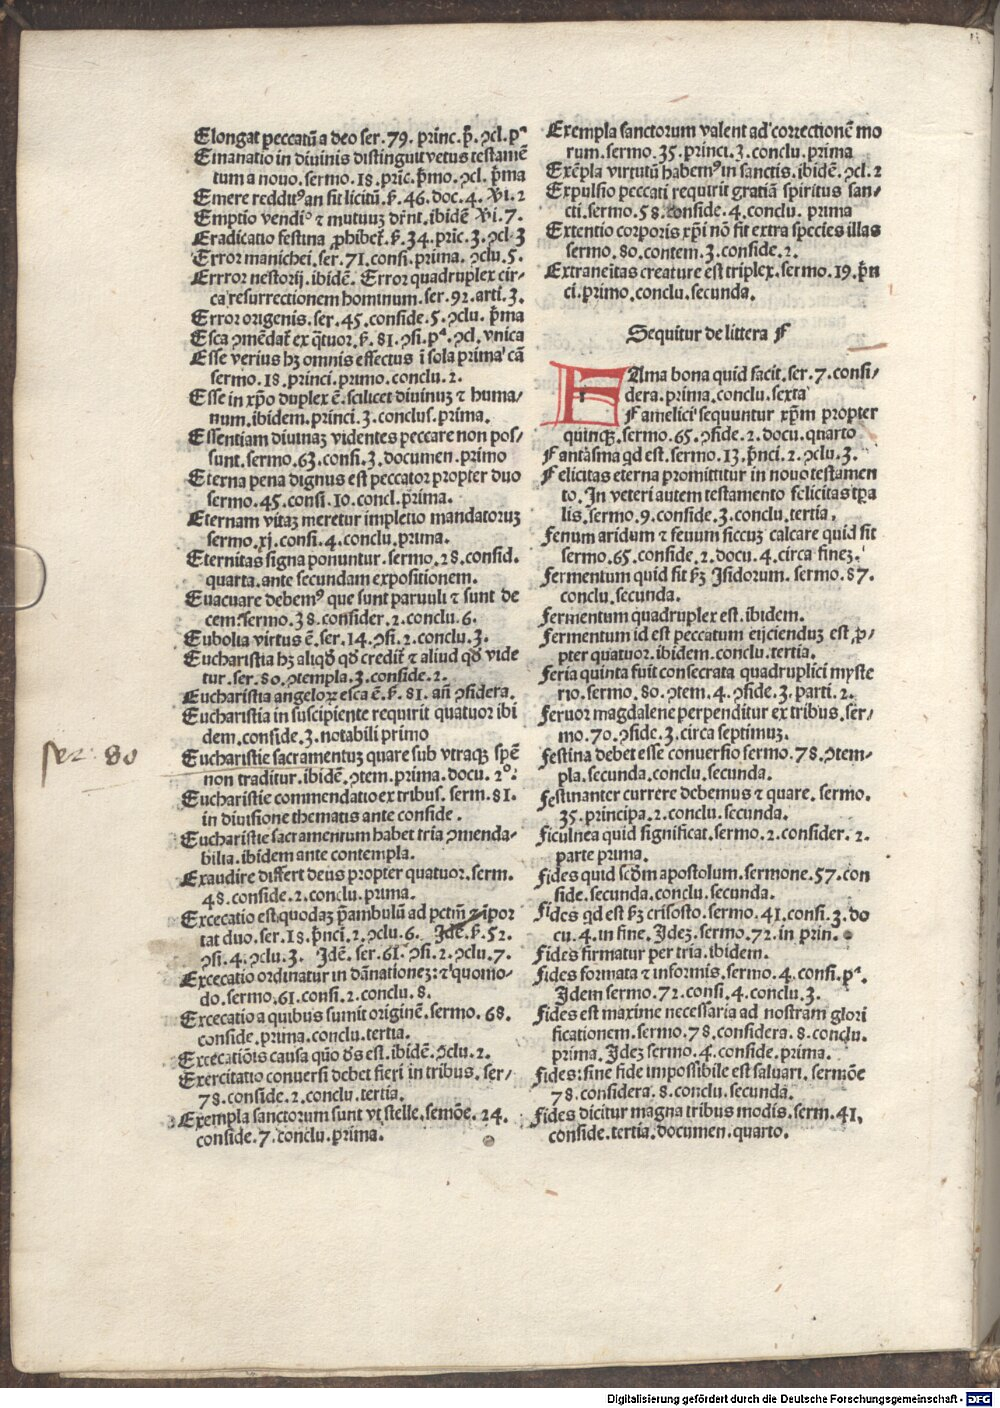 Elongat peccatū a deo ser.79.princ.p̄.ↄcl.pª
Emanatio in diuinis distinguit vetus testamē
tum a nouo.sermo.18.pric̄.p̄mo.ↄcl.p̄ma
Emere redditꝰ an sit licitū.s̄.46.doc.4.Xvi.2
Emptio vendiº ⁊ mutuuꝫ dr̄nt.ibidē Xvi.7.
Eradicatio festina ꝓhibet̄.s̄.34.pric̄.3.ↄcl.3
Error manichei.ser.71.consi.prima.ↄclu.5.
Errror nestorij.ibidē. Error quadruplex cir-
ca resurrectionem hominum.ser.92.arti.3.
Error origenis.ser.45.conside.5.ↄclu.p̄ma
Esca ↄmēdat̄ ex q̄tuor.s̄.81.ↄsi.pª.ↄcl.vnica
Esse verius hꝫ omnis effectus ī sola prima cā
sermo.18.princi.primo.conclu.2.
Esse in xp̄o duplex ē.scilicet diuinuꝫ ⁊ huma-
num.ibidem.princi.3.conclus.prima.
Essentiam diuinaꝫ videntes peccare non pos-
sunt.sermo.63.consi.3.documen.primo
Eterna pena dignus est peccator propter duo
sermo.45.consi.10.concl.prima.
Eternam vitaꝫ meretur impletio mandatoruꝫ
sermo.xj.consi.4.conclu.prima.
Eternitas signa ponuntur.sermo.28.consid.
quarta.ante secundam expositionem.
Euacuare debemꝰ que sunt paruuli ⁊ sunt de
cem:sermo.38.consider.2.conclu.6.
Eubolia virtus ē.ser.14.ↄsi.2.conclu.3.
Eucharistia hꝫ aliqd̄ qd̄ credit̄ ⁊ aliud qd̄ vide
tur.ser.80.ↄtempla.3.conside.2.
Eucharistia angeloꝝ esca ē.s̄.81.an̄ ↄsidera.
Eucharistia in suscipiente requirit quatuor ibi
dem.conside.3.notabili primo
ser 80
Eucharistie sacramentuꝫ quare sub vtraqꝫ spē
non traditur.ibidē.ↄtem.prima.docu.2º.
Eucharistie commendatio ex tribus.serm.81.
in diuisione thematis ante conside.
Eucharistie sacramentum habet tria ↄmenda-
bilia.ibidem ante contempla.
Exaudire differt deus propter quatuor.serm.
48.conside.2.conclu.prima.
Excecatio est quodaꝫ p̄ambulū ad pctm̄ ⁊ īpor
tat duo.ser.18.p̄nci.2.ↄclu.6. Idē.s̄.52.
ↄsi.4.ↄclu.3. Idē.ser.61.ↄsi.2.ↄclu.7.
Excecatio ordinatur in dānationeꝫ:⁊ quomo-
do.sermo.61.consi.2.conclu.8.
Excecatio a quibus sumit originē.sermo.68.
conside.prima.conclu.tertia.
Excecatiōis causa quō de̓s est.ibidē.ↄclu.2.
Exercitatio conuersi debet fieri in tribus.ser-
78.conside.2.conclu.tertia.
Exempla sanctorum sunt vt stelle.semōe.24.
conside.7.conclu.prima.
Exempla sanctorum valent ad correctionē mo
rum.sermo.35.princi.3.conclu.prima
Exēpla virtutū habemꝰ in sanctis.ibidē.ↄcl.2
Expulsio peccati requirit gratiā spiritus san-
cti.sermo.58.conside.4.conclu. prima
Extentio corporis xp̄i nō fit extra species illas
sermo.80.contem.3.conside.2.
Extraneitas creature est triplex.sermo.19.p̄n
ci.primo.conclu.secunda.
Sequitur de littera F
FAma bona quid facit.ser.7.consi-
dera.prima.conclu.sexta
Famelici sequuntur xp̄m propter
quinqꝫ.sermo.65.ↄside.2.docu.quarto
Fantasma qd est.sermo.13.p̄nci.2.ↄclu.3.
Felicitas eterna promittitur in nouo testamen
to. In veteri autem testamento felicitas tp̄a
lis.sermo.9.conside.3.conclu.tertia.
Fenum aridum ⁊ fenum siccuꝫ calcare quid sit
sermo.65.conside.2.docu.4.circa fineꝫ.
Fermentum quid sit s̄ꝫ Isidorum. sermo.87.
conclu.secunda.
Fermentum quadruplex est.ibidem.
Fermentum id est peccatum eijcienduꝫ est ꝓ-
pter quatuor.ibidem.conclu.tertia.
Feria quinta fuit consecrata quadruplici myste
rio.sermo.80.ↄtem.4.ↄside.3.parti.2.
Feruor magdalene perpenditur ex tribus.ser-
mo.70.ↄside.3.circa septimuꝫ.
Festina debet esse conuersio sermo.78.ↄtem-
pla.secunda.conclu.secunda.
Festinanter currere debemus ⁊ quare. sermo.
35.principa.2.conclu.secunda.
Ficulnea quid significat.sermo.2.consider.2.
parte prima.
Fides quid scd̄m apostolum.sermone.57.con
side.secunda.conclu.secunda.
Fides qd est s̄ꝫ crisosto.sermo.41.consi.3.do
cu.4.in fine.Ideꝫ.sermo.72.in prin.
Fides firmatur per tria.ibidem.
Fides formata ⁊ informis.sermo.4.consi.pª.
Idem sermo.72.consi.4.conclu.3.
Fides est maxime necessaria ad nostram glori
ficationem.sermo.78.considera.8.conclu.
prima.Ideꝫ sermo.4.conside.prima.
Fides:sine fide impossibile est saluari. sermōe
78.considera.8.conclu.secunda.
Fides dicitur magna tribus modis.serm.41.
conside.tertia.documen.quarto.
Digitalisierung gefördert durch die Deutsche Forschungsgemeinschaft - DFG